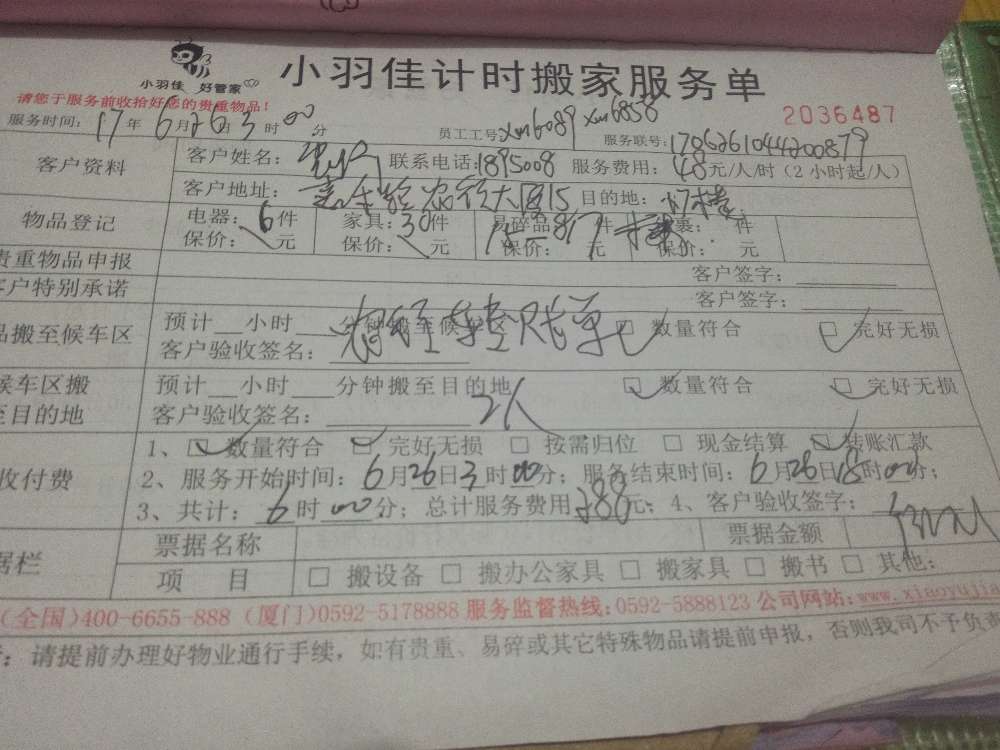 小羽佳 好管家
小羽佳计时搬家服务单
请您于服务前收拾好您的贵重物品!
2036487
服务时间: 17年6月26日3时00分 员工工号: xm6089 xm6858
服务联号: 1706261044200879
客户资料 客户姓名: 联系电话: 1895008 服务费用: 48元/人/时(2小时起/人)
客户地址: 大厦15 目的地: 17楼
物品登记 电器: 6件 家具: 30件 易碎品: 件 包裹: 件
保价: 元 保价: 元 保价: 元 保价: 元
贵重物品申报 客户签字:
客户特别承诺 客户签字:
品搬至候车区 预计 小时 分钟搬至候车区 数量符合 完好无损
客户验收签名:
候车区搬 预计 小时 分钟搬至目的地 数量符合 完好无损
至目的地 客户验收签名: 2人
收付费 1、数量符合 完好无损 按需归位 现金结算 转账汇款
2、服务开始时间: 6月26日3时00分; 服务结束时间: 6月26日18时00分;
3、共计: 6时00分; 总计服务费用288元; 4、客户验收签字:
据栏 票据名称 票据金额
项 目 搬设备 搬办公家具 搬家具 搬书 其他:
(全国)400-6655-888 (厦门)0592-5178888 服务监督热线:0592-5888123 公司网站:www.xiaoyujia
: 请提前办理好物业通行手续,如有贵重、易碎或其它特殊物品请提前申报,否则我司不予负责